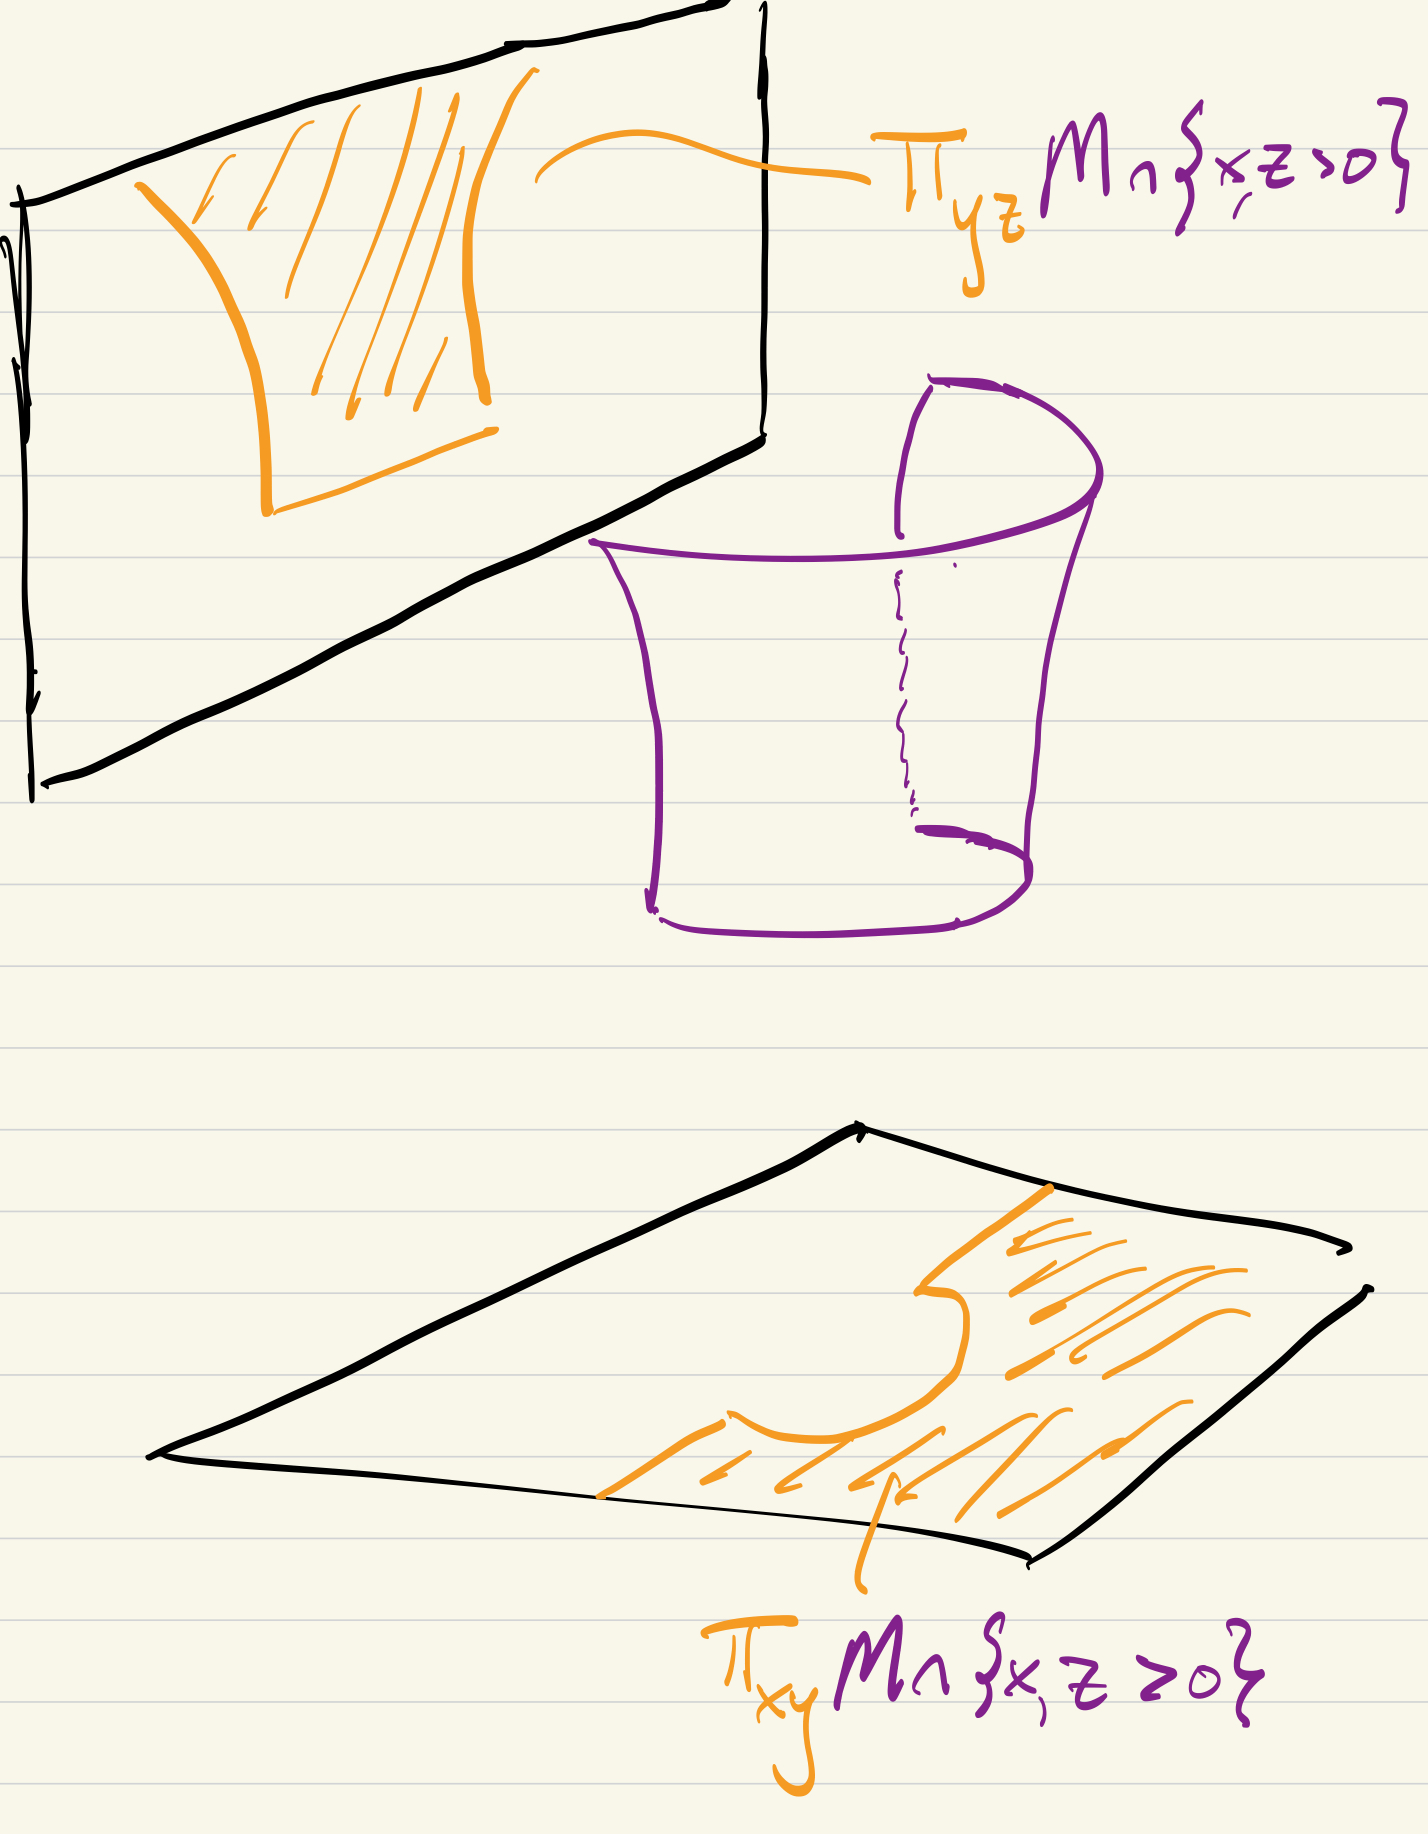 π_yz M∩{x,z>0}
π_xy M∩{x,z>0}